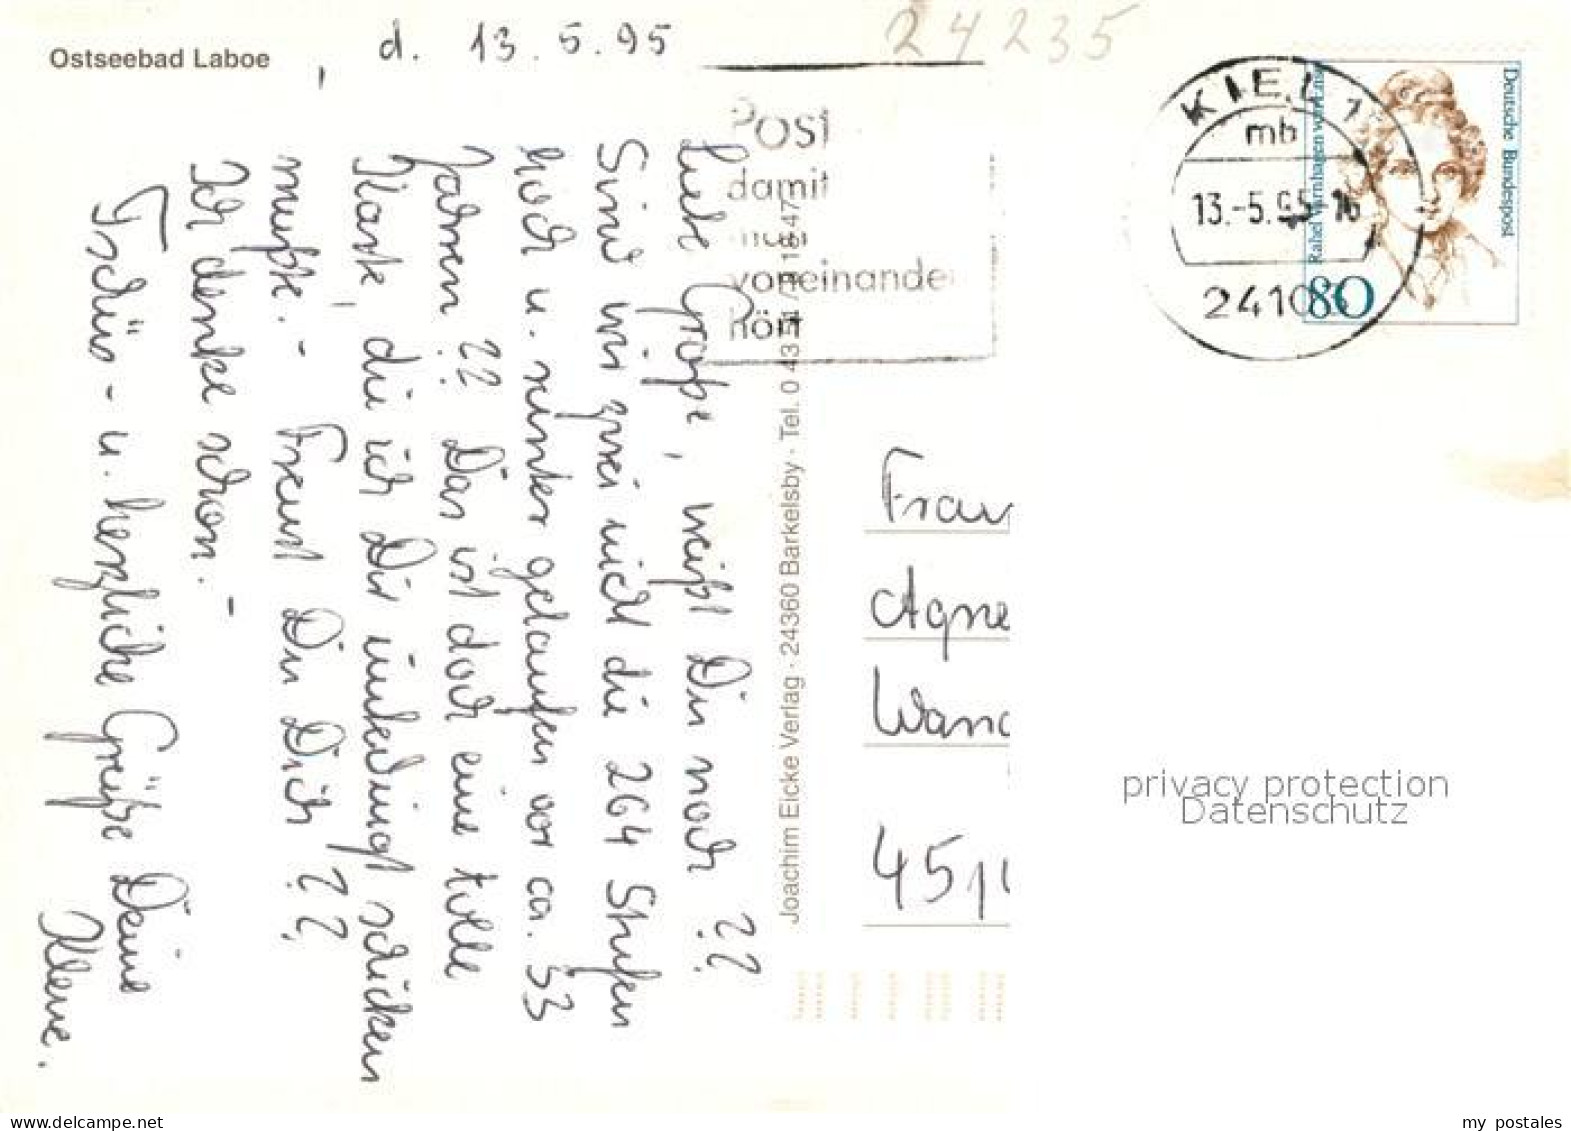 Ostseebad Laboe
, d. 13.5.95
24235
Liebe Große, weißt Du noch ??
Sind wir zwei nicht die 264 Stufen
hoch u. runter gelaufen vor ca. 33
Jahren ?? Das ist doch eine tolle
Karte, die ich Dir unbedingt schicken
mußte. - Freust Du Dich ??
Ich denke schon. -
Tschüs - u. herzliche Grüße Deine
Kleine.
Post
damit
man
voneinander
hört
Joachim Eicke Verlag · 24360 Barkelsby · Tel. 0 43
KIEL 1
mb
13.-5.95-16
Deutsche Bundespost
Rahel Varnhagen von Ense
80
Frau
Agne
Wan
45
privacy protection
Datenschutz
www.delcampe.net
my_postales